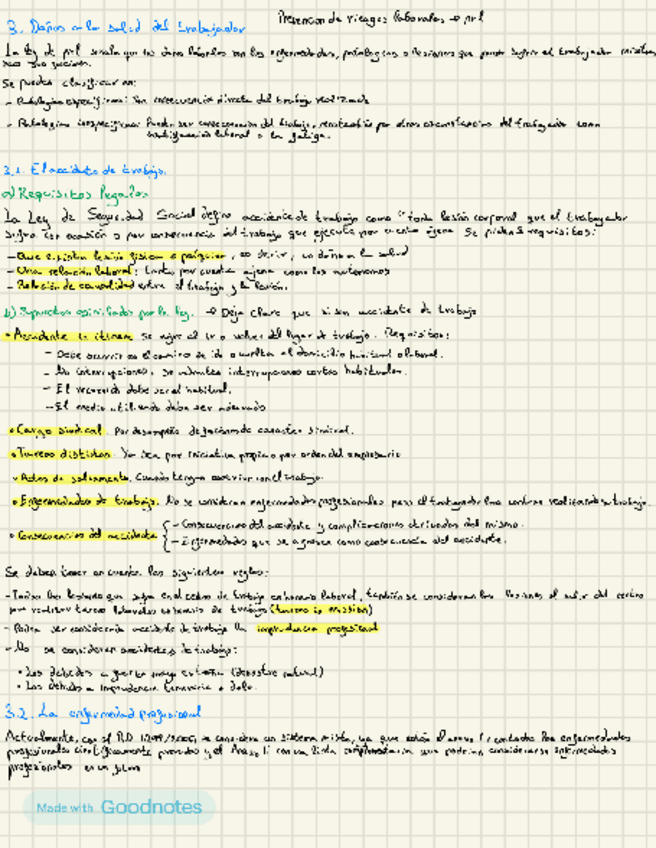 Prevención de riesgos laborales → prl
3. Daños a la salud del trabajador
La Ley de prl señala que los daños laborales son las enfermedades, patologías o lesiones que puede sufrir el trabajador
Se pueden clasificar en:
- Patologías específicas: Son consecuencia directa del trabajo realizado
- Patologías inespecíficas: Pueden ser consecuencia del trabajo, por otras circunstancias del trabajador como
laboral o la fatiga.
3.1. El accidente de trabajo.
a) Requisitos legales
La Ley de Seguridad Social define accidente de trabajo como "toda lesión corporal que el trabajador
sufra con ocasión o por consecuencia del trabajo que ejecute por cuenta ajena. Se piden 3 requisitos:
- Que exista lesión física o psíquica, es decir, un daño en la salud
- Una relación laboral: tanto por cuenta ajena como los autónomos
- Relación de causalidad entre el trabajo y la lesión.
b) Supuestos por la ley. → Deja claro que si son accidente de trabajo
• Accidente in itinere. Se sufre al ir o volver del lugar de trabajo. Requisitos:
- Debe ocurrir en el camino de ida o vuelta al domicilio habitual o laboral.
- No interrupciones, se admiten interrupciones cortas habituales.
- El recorrido debe ser el habitual.
- El medio utilizado debe ser adecuado
• Cargo sindical. Por desempeño de funciones de caracter sindical.
• Tareas distintas. Ya sea por iniciativa propia o por orden del empresario
• Actos de salvamento. Cuando tengan conexión con el trabajo.
• Enfermedades de trabajo. No se consideran enfermedades profesionales pero el trabajador las contrae realizando su trabajo.
• Consecuencias del accidente { - Consecuencias del accidente y complicaciones derivadas del mismo.
- Enfermedades que se agravan como consecuencia del accidente.
Se deben tener en cuenta las siguientes reglas:
- Todas las lesiones que sufra en el centro de trabajo en horario laboral, también se consideran las lesiones al salir del centro
por realizar tareas laborales de trabajo (tareas in mission)
- Podrá ser considerada accidente de trabajo la imprudencia profesional
- No se consideran accidentes de trabajo:
• Los debidos a fuerza mayor extraña (desastre natural)
• Los debidos a imprudencia temeraria o dolo.
3.2. La enfermedad profesional
Actualmente, con el R.D. se considera un sistema mixto, ya que están el anexo I contiene las enfermedades
profesionales científicamente probadas y el Anexo II con una lista complementaria que podrían considerarse enfermedades
profesionales en un futuro
Made with Goodnotes